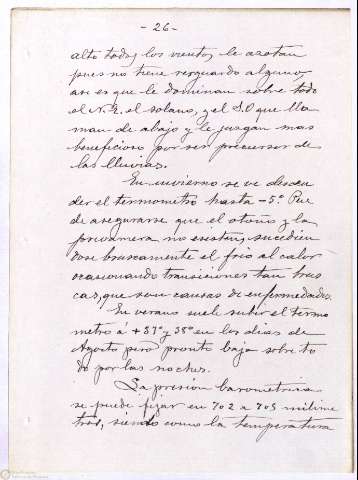 - 26 -
alto todos los vientos le azotan
pues no tiene resguardo alguno,
asi es que le dominan sobre todo
el N.E. el solano, y el S.O que lla
man de abajo y le juzgan mas
beneficioso por ser precursor de
las lluvias.
En invierno se ve descen
der el termometro hasta -5º. Pue
de asegurarse que el otoño y la
primavera no existen, sucedien
dose bruscamente el frio al calor
ocasionando transiciones tan brus
cas, que son causas de enfermedades.
En verano suele subir el termo
metro á +37º y 38º en los dias de
Agosto pero pronto baja sobre to
do por las noches.
La presión barometrica
se puede fijar en 702 a 705 milime
tros, siendo como la temperatura